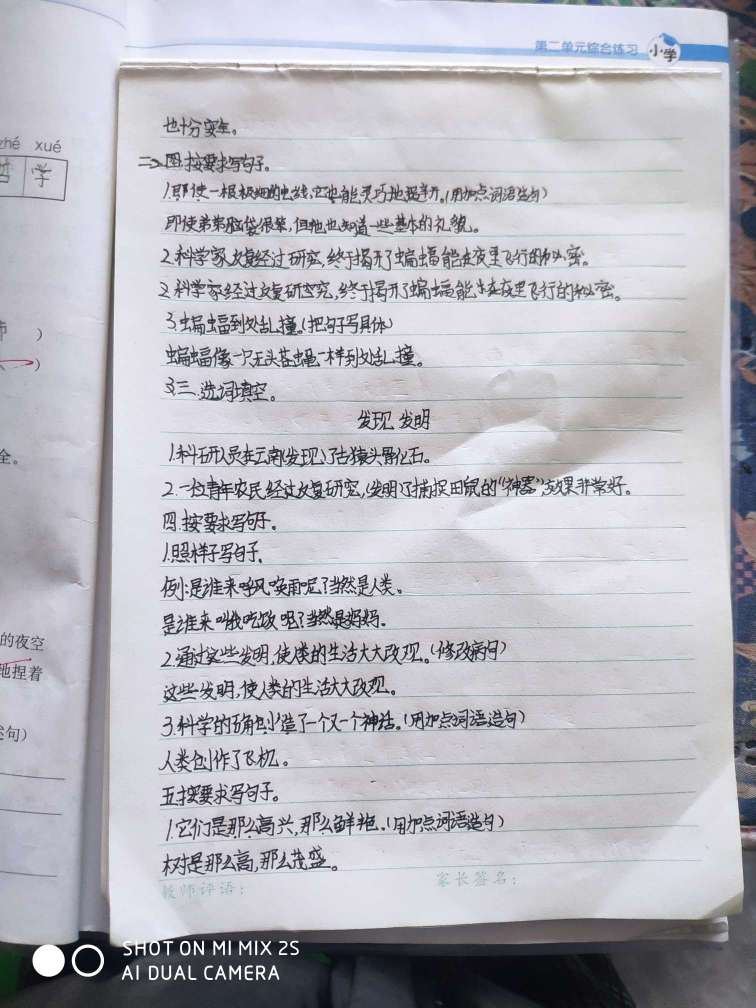 第二单元综合练习 小学
zhé xué
哲 学
也十分安全。
二、四按要求写句子。
1.即使一根极细的电线,它也能灵巧地避开。(用加点词语造句)
即使弟弟脑袋很笨,但他也知道一些基本的礼貌。
2.科学家反复经过研究,终于揭开了蝙蝠能在夜里飞行的秘密。
2.科学家经过反复研究,终于揭开了蝙蝠能在夜里飞行的秘密。
3.蝙蝠到处乱撞。(把句子写具体)
蝙蝠像一只无头苍蝇一样到处乱撞。
三、选词填空。
发现 发明
1.科研人员在云南(发现)了古猿头骨化石。
2.一位青年农民经过反复研究,(发明)了捕捉田鼠的“神器”,效果非常好。
四.按要求写句子。
1.照样子写句子。
例:是谁来呼风唤雨呢?当然是人类。
是谁来叫我吃饭呢?当然是妈妈。
2.通过这些发明,使人类的生活大大改观。(修改病句)
这些发明,使人类的生活大大改观。
3.科学的确创造了一个又一个神话。(用加点词语造句)
人类创作了飞机。
五按要求写句子。
1.它们是那么高兴,那么鲜艳。(用加点词语造句)
树是那么高,那么茂盛。
教师评语: 家长签名:
全。
的夜空
地捏着
句)
SHOT ON MI MIX 2S
AI DUAL CAMERA